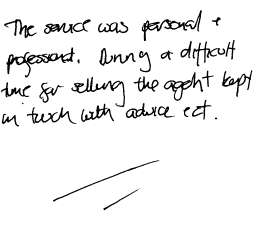 The service was personal +
professional. During a difficult
time for selling the agent kept
in touch with advice ect.